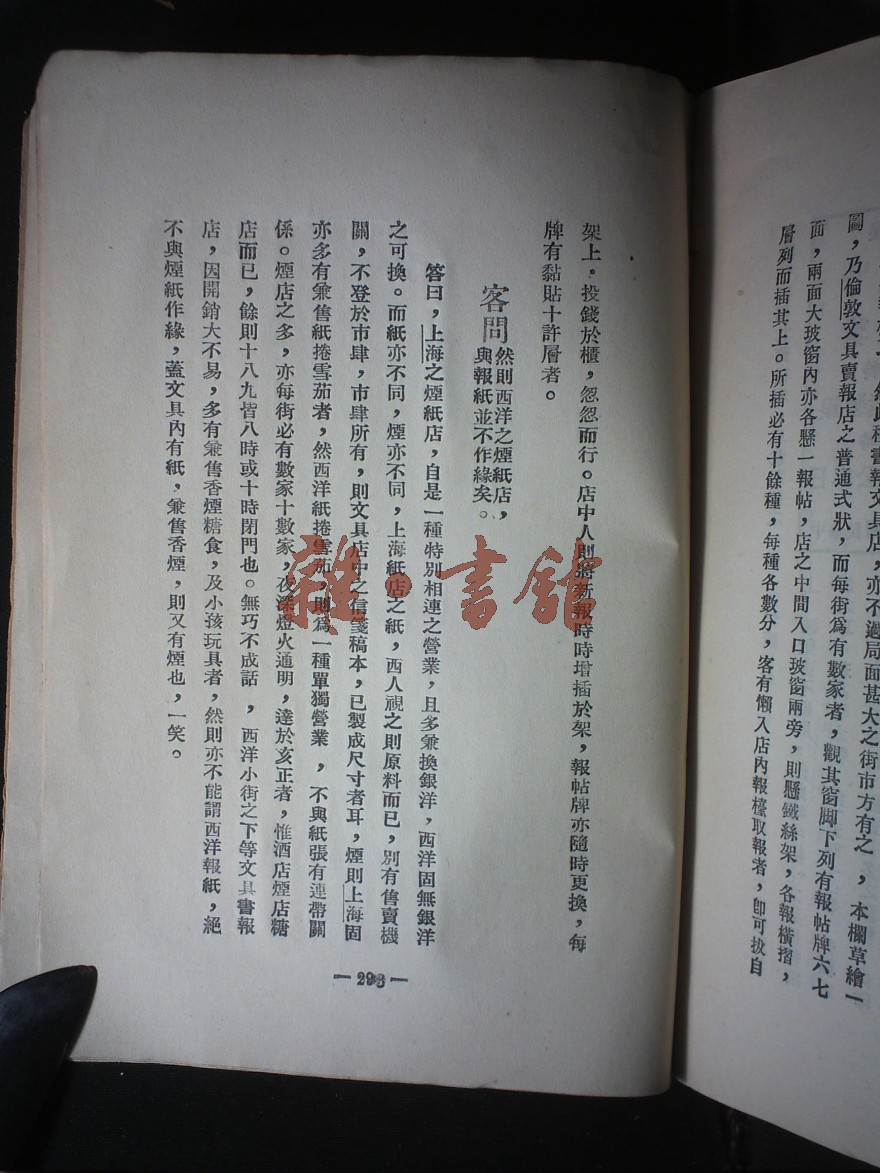 圖，乃倫敦文具賣報店之普通式狀，而每街為有數家者，觀其窗脚下列有報帖牌六七
面，兩面大玻窗內亦各懸一報帖，店之中間入口玻窗兩旁，則懸鐵絲架，各報橫摺，
層列而插其上。所插必有十餘種，每種各數分，客有懶入店內報檯取報者，卽可拔自
架上。投錢於櫃，忽忽而行。店中人則將新報時時增插於架，報帖牌亦隨時更換，每
牌有黏貼十許層者。
客問
然則西洋之煙紙店，
與報紙並不作緣矣。
答曰，上海之煙紙店，自是一種特別相連之營業，且多兼換銀洋，西洋固無銀洋
之可換。而紙亦不同，煙亦不同，上海紙店之紙，西人視之則原料而已，別有售賣機
關，不登於市肆，市肆所有，則文具店中之信箋稿本，已製成尺寸者耳，煙則上海固
亦多有兼售紙捲雪茄者，然西洋紙捲雪茄，則為一種單獨營業，不與紙張有連帶關
係。煙店之多，亦每街必有數家十數家，夜深燈火通明，達於亥正者，惟酒店煙店糖
店而已，餘則十八九皆八時或十時閉門也。無巧不成話，西洋小街之下等文具書報
店，因開銷大不易，多有兼售香煙糖食，及小孩玩具者，然則亦不能謂西洋報紙，絕
不與煙紙作緣，蓋文具內有紙，兼售香煙，則又有煙也，一笑。
—296—
雜·書館